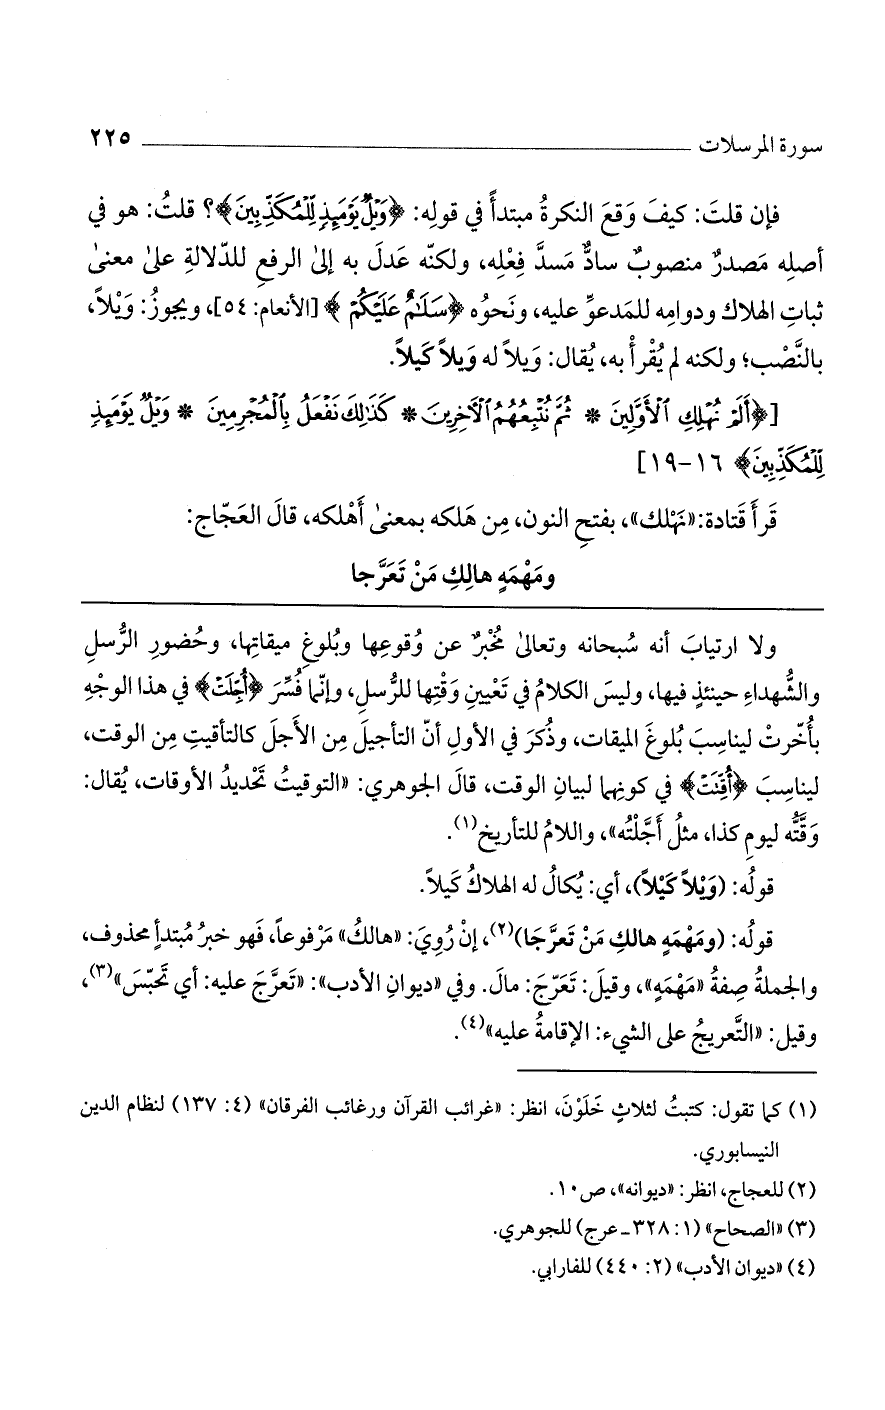 سورة المرسلات ٢٢٥
فإن قلتَ: كيفَ وَقعَ النكرةُ مبتدأً في قولِه: ﴿وَيْلٌ يَوْمَئِذٍ لِّلْمُكَذِّبِينَ﴾؟ قلتُ: هو في
أصلِه مَصدرٌ منصوبٌ سادٌّ مَسدَّ فِعْلِه، ولكنّه عَدلَ به إلىٰ الرفعِ للدّلالةِ علىٰ معنىٰ
ثباتِ الهلاك ودوامِه للمَدعوِّ عليه، ونَحوُه ﴿سَلَـٰمٌ عَلَيْكُمْ﴾ [الأنعام: ٥٤]، ويجوزُ: وَيْلاً،
بالنَّصْب؛ ولكنه لم يُقْرأْ به، يُقال: وَيلاً له وَيلاً كَيلاً.
[﴿أَلَمْ نُهْلِكِ ٱلْأَوَّلِينَ * ثُمَّ نُتْبِعُهُمُ ٱلْآخِرِينَ * كَذَٰلِكَ نَفْعَلُ بِٱلْمُجْرِمِينَ * وَيْلٌ يَوْمَئِذٍ
لِّلْمُكَذِّبِينَ﴾ ١٦-١٩]
قَرأَ قَتادة: «نَهْلك»، بفتحِ النون، مِن هَلكه بمعنىٰ أَهْلكه، قالَ العَجّاج:
ومَهْمَهٍ هالِكِ مَنْ تَعَرَّجا
ولا ارتيابَ أنه سُبحانه وتعالىٰ مُخْبرٌ عن وُقوعِها وبُلوغِ ميقاتِها، وحُضورِ الرُّسلِ
والشُّهداءِ حينئذٍ فيها، وليسَ الكلامُ في تَعْيينِ وَقْتِها للرُّسلِ، وإنّما فُسِّرَ ﴿أُجِّلَتْ﴾ في هذا الوجْهِ
بأُخّرتْ ليناسِبَ بُلوغَ الميقات، وذُكرَ في الأولِ أنّ التأجيلَ مِن الأَجلَ كالتأقيتِ مِن الوقت،
ليناسِبَ ﴿أُقِّتَتْ﴾ في كونِهما لبيانِ الوقت، قالَ الجوهري: «التوقيتُ تَحْديدُ الأوقات، يُقال:
وَقَّتُّه ليومِ كذا، مثلُ أَجَّلْتُه»، واللامُ للتأريخ(١).
قولُه: (وَيْلاً كَيْلاً)، أي: يُكالُ له الهلاكُ كَيلاً.
قولُه: (ومَهْمَهٍ هالكِ مَنْ تَعرَّجَا)(٢)، إنْ رُوِيَ: «هالكُ» مَرْفوعاً، فَهو خبرُ مُبتدأٍ محذوف،
والجملةُ صِفةُ «مَهْمَهٍ»، وقيلَ: تَعَرّجَ: مالَ. وفي «ديوانِ الأدب»: «تَعرَّجَ عليه: أي تَحَبّسَ»(٣)،
وقيل: «التَّعريجُ على الشيء: الإقامةُ عليه»(٤).
(١) كما تقول: كتبتُ لثلاثٍ خَلَوْنَ، انظر: «غرائب القرآن ورغائب الفرقان» (٤: ١٣٧) لنظام الدين
النيسابوري.
(٢) للعجاج، انظر: «ديوانه»، ص١٠.
(٣) «الصحاح» (١: ٣٢٨ - عرج) للجوهري.
(٤) «ديوان الأدب» (٢: ٤٤٠) للفارابي.